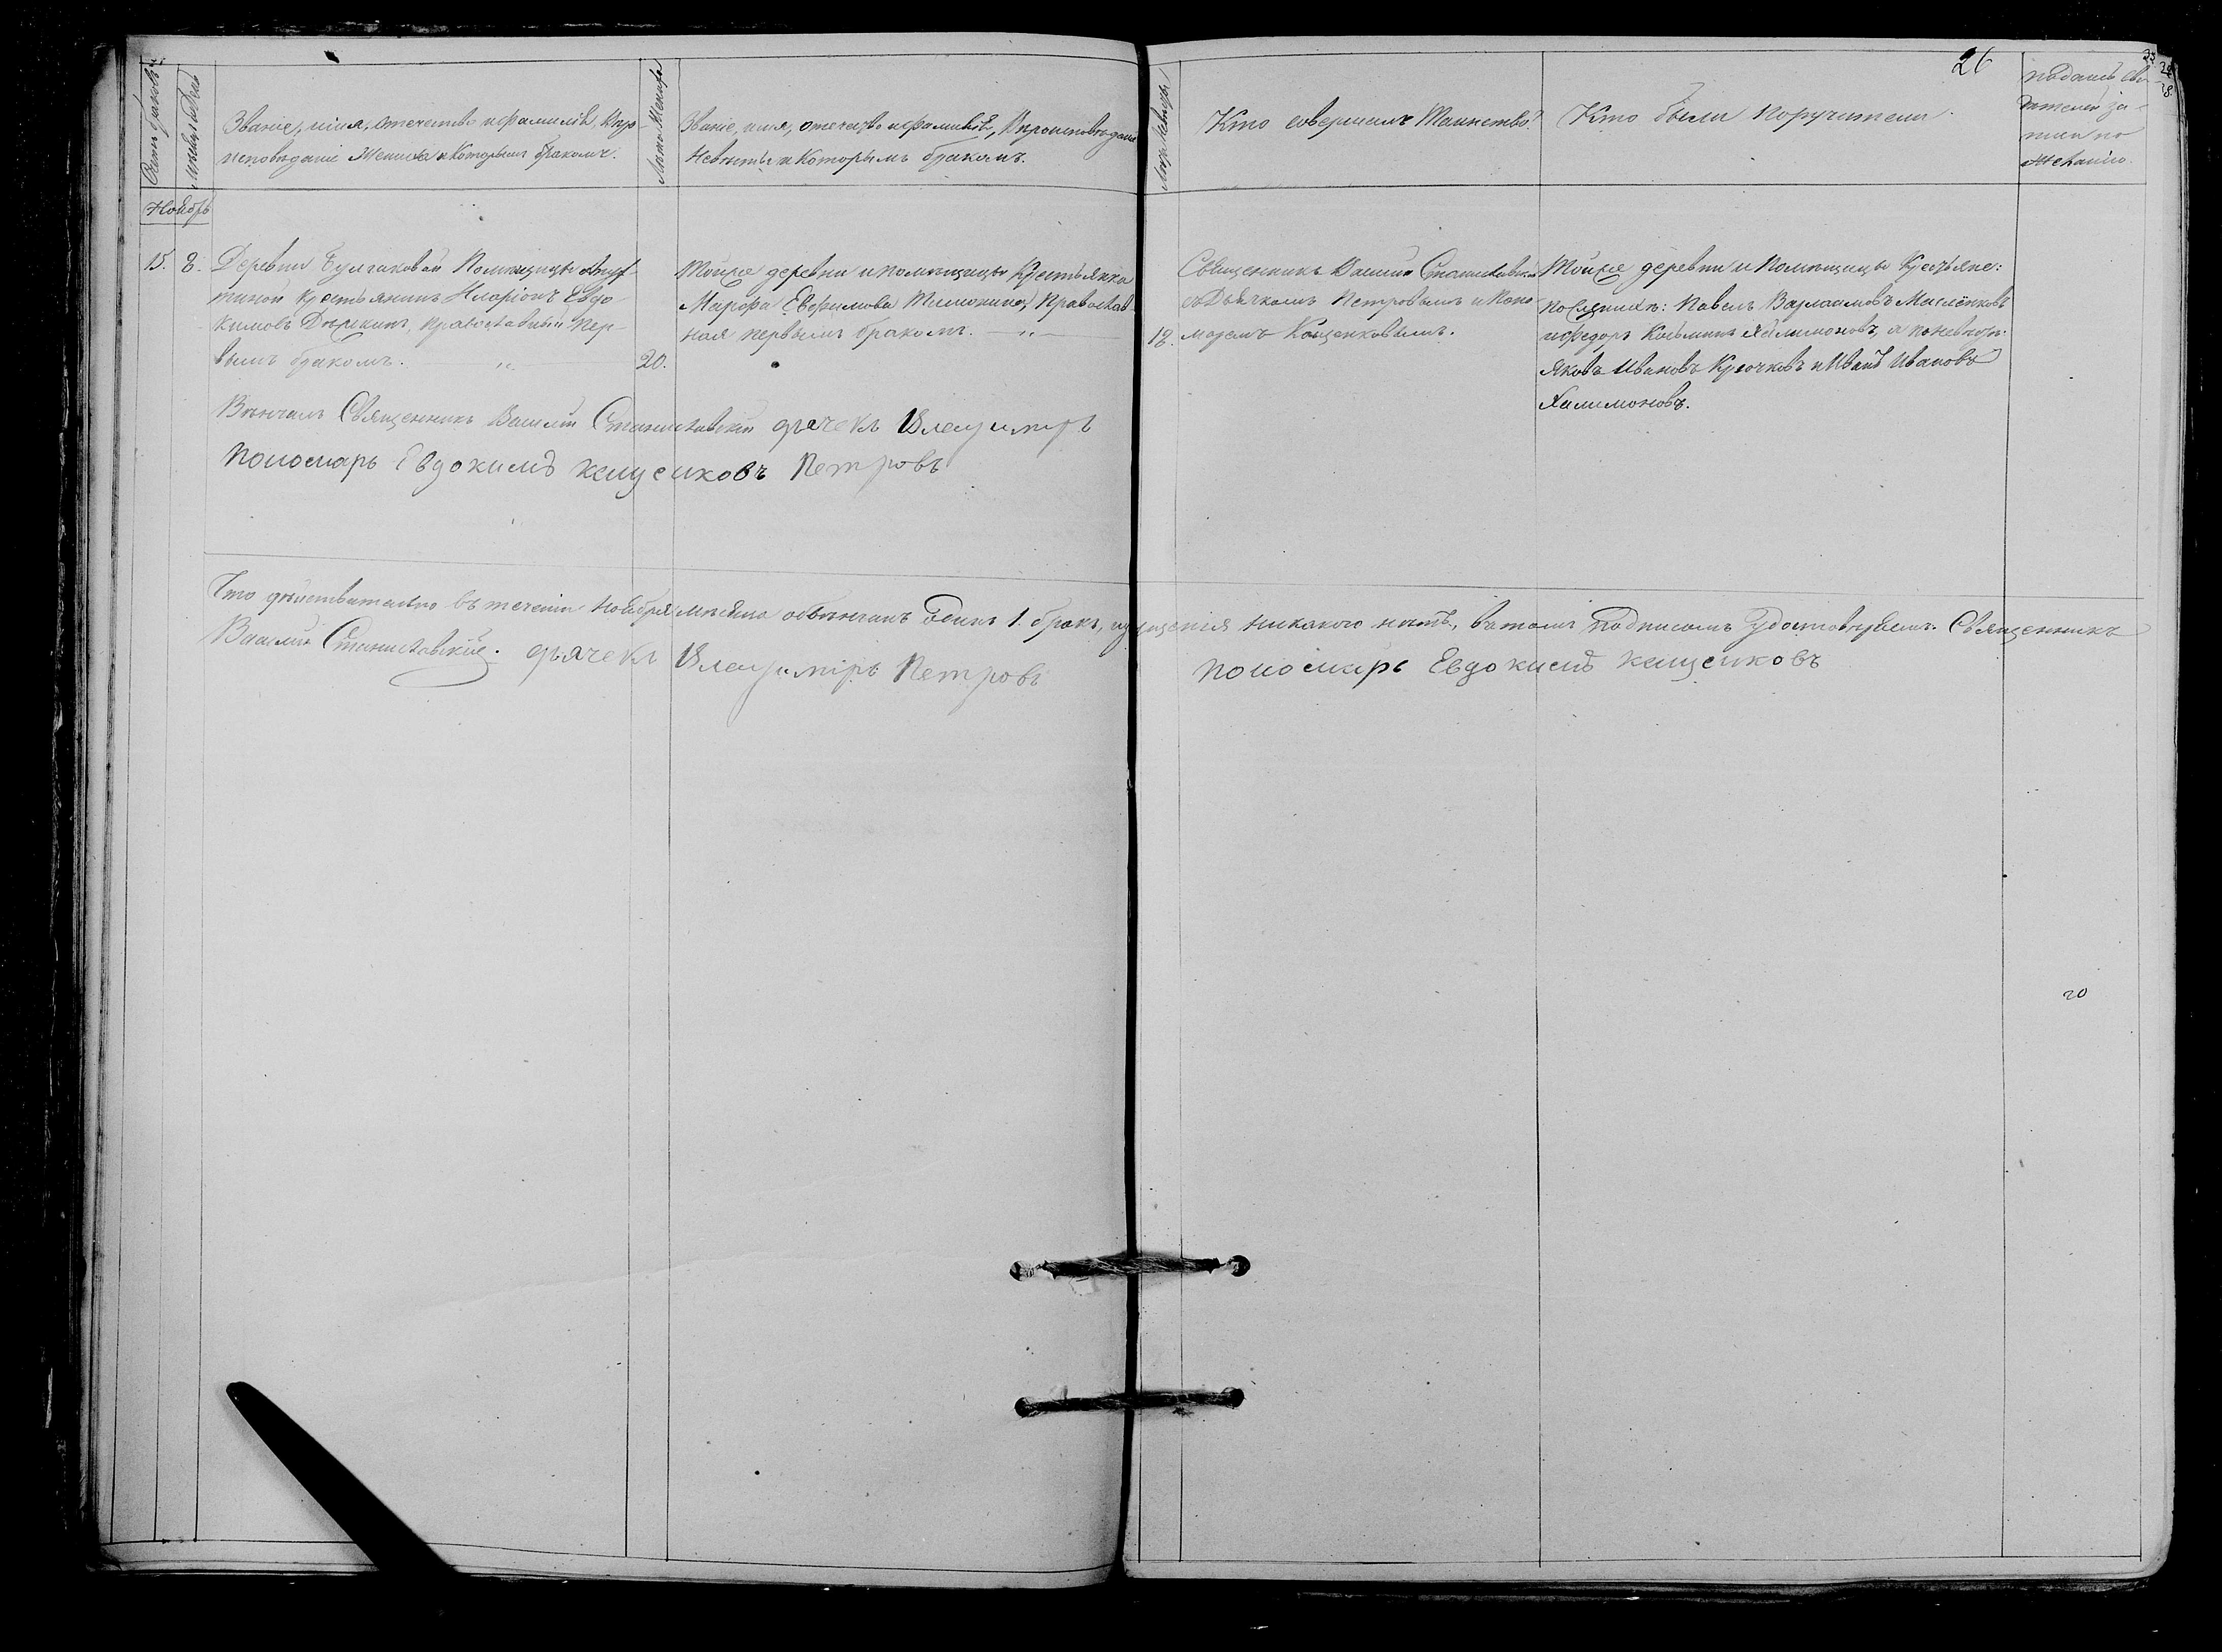 26
Счетъ браковъ
Мѣсяцъ и День
Званіе, имя, отечество и фамилія, вѣро-
исповѣданіе Жениха и Которымъ бракомъ.
Лѣта Жениха
Званіе, имя, отечество и фамилія, вѣроисповѣданіе
Невѣсты и Которымъ бракомъ.
Лѣта Невѣсты
Кто совершалъ Таинство?
Кто были Поручители.
подпись сви-
дѣтелей за-
писи по
желанію.
Ноябрь
15. 8.
Деревни Булгаковой Помѣщицы
крестьянинъ Иларіонъ Евдо-
кимовъ православный пер-
вымъ бракомъ.
20.
Тойже деревни и помѣщицы Крестьянка
Марфа Ефимова православ-
ная первымъ бракомъ.
18.
Священникъ Василій Станиславскій
съ Дьячкомъ Петровымъ и Поно-
маремъ Кощенковымъ.
Тойже деревни и Помѣщицы Крестьяне:
по женихѣ: Павелъ Варлаамовъ Маслёнковъ
и Федоръ Козьминъ Халимоновъ, а по невѣстѣ:
Яковъ Ивановъ Крючковъ и Иванъ Ивановъ
Халимоновъ.
Вѣнчалъ Священникъ Василій Станиславскій дьячекъ Владимиръ
Пономарь Евдокимъ Кощенковъ Петровъ
Что дѣйствительно въ теченіи Ноября мѣсяца обвѣнчанъ Одинъ 1. бракъ, никакого нѣтъ, въ томъ Подписомъ Удостовѣряемъ. Священникъ
Василій Станиславскій. дьячекъ Владимиръ Петровъ Пономарь Евдокимъ Кощенковъ